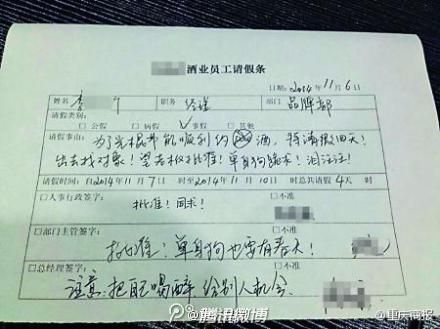 酒业员工请假条
日期:2014年11月6日
姓名 李 职务 经理 部门 品牌部
请假类别:
□公假 □病假 ☑事假 □其他
请假事由: 为了光棍节能顺利约 酒,特请假四天!
出去找对象!望老板批准!单身狗跪求!泪汪汪!
请假时间:自2014年11月7日 时至2014年11月10日 时总共请假4天 时
□人事行政签字: □不准
批准!同求!
□部门主管签字: □不准
批准!单身狗也要有春天!
□总经理签字: □不准
注意:把自己喝醉 给别人机会
腾讯微博
@重庆商报